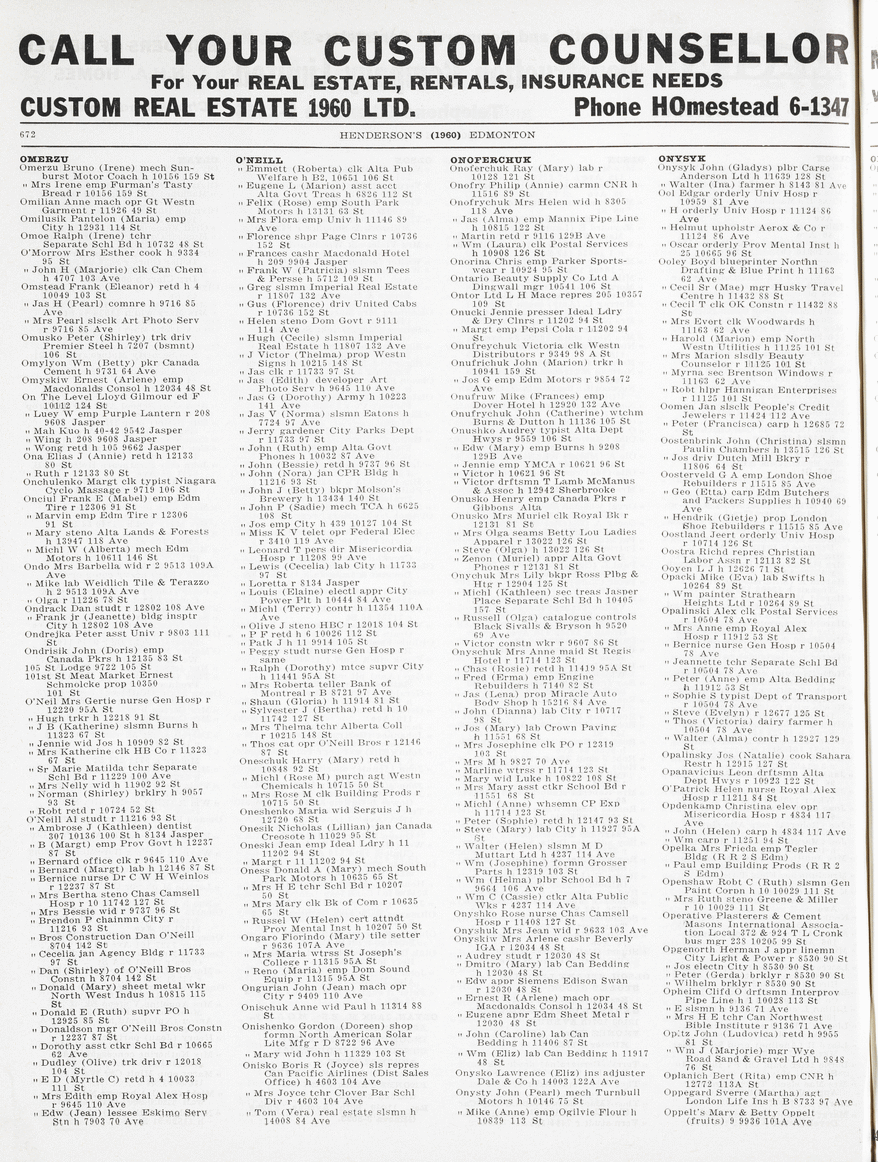 CALL YOUR CUSTOM COUNSELLOR
For Your REAL ESTATE, RENTALS, INSURANCE NEEDS
CUSTOM REAL ESTATE 1960 LTD. Phone HOmestead 6-1347
672 HENDERSON'S (1960) EDMONTON
OMERZU
Omerzu Bruno (Irene) mech Sun-
burst Motor Coach h 10156 159 St
" Mrs Irene emp Furman's Tasty
Bread r 10156 159 St
Omilian Anne mach opr Gt Westn
Garment r 11926 49 St
Omilusik Pantelon (Maria) emp
City h 12931 114 St
Omoe Ralph (Irene) tchr
Separate Schl Bd h 10732 48 St
O'Morrow Mrs Esther cook h 9334
95 St
" John H (Marjorie) clk Can Chem
h 4707 103 Ave
Omstead Frank (Eleanor) retd h 4
10049 103 St
" Jas H (Pearl) comnre h 9716 85
Ave
" Mrs Pearl slsclk Art Photo Serv
r 9716 85 Ave
Omusko Peter (Shirley) trk driv
Premier Steel h 7207 (bsmnt)
106 St
Omylyon Wm (Betty) pkr Canada
Cement h 9731 64 Ave
Omyskiw Ernest (Arlene) emp
Macdonalds Consol h 12034 48 St
On The Level Lloyd Gilmour ed F
10112 124 St
" Luey W emp Purple Lantern r 208
9608 Jasper
" Mah Kuo h 40-42 9542 Jasper
" Wing h 208 9608 Jasper
" Wong retd h 105 9662 Jasper
Ona Elias J (Annie) retd h 12133
80 St
" Ruth r 12133 80 St
Onchulenko Margt clk typist Niagara
Cyclo Massage r 9719 106 St
Onciul Frank E (Mabel) emp Edm
Tire r 12306 91 St
" Marvin emp Edm Tire r 12306
91 St
" Mary steno Alta Lands & Forests
h 13947 118 Ave
" Michl W (Alberta) mech Edm
Motors h 10611 146 St
Ondo Mrs Barbella wid r 2 9513 109A
Ave
" Mike lab Weidlich Tile & Terazzo
h 2 9513 109A Ave
" Olga r 11226 78 St
Ondrack Dan studt r 12802 108 Ave
" Frank jr (Jeanette) bldg insptr
City h 12802 108 Ave
Ondrejka Peter asst Univ r 9803 111
St
Ondrisik John (Doris) emp
Canada Pkrs h 12135 83 St
105 St Lodge 9722 105 St
101st St Meat Market Ernest
Schmolcke prop 10350
101 St
O'Neil Mrs Gertie nurse Gen Hosp r
12220 95A St
" Hugh trkr h 12218 91 St
" J B (Katherine) slsmn Burns h
11323 67 St
" Jennie wid Jos h 10909 82 St
" Mrs Katherine clk HB Co r 11323
67 St
" Sr Marie Matilda tchr Separate
Schl Bd r 11229 100 Ave
" Mrs Nelly wid h 11902 92 St
" Norman (Shirley) brklry h 9057
93 St
" Robt retd r 10724 52 St
O'Neill Al studt r 11216 93 St
" Ambrose J (Kathleen) dentist
307 10136 100 St h 8134 Jasper
" B (Margt) emp Prov Govt h 12237
87 St
" Bernard office clk r 9645 110 Ave
" Bernard (Margt) lab h 12146 87 St
" Bernice nurse Dr C W H Weinlos
r 12237 87 St
" Mrs Bertha steno Chas Camsell
Hosp r 10 11742 127 St
" Mrs Bessie wid r 9737 96 St
" Brendon P chainmn City r
11216 93 St
" Bros Construction Dan O'Neill
8704 142 St
" Cecelia jan Agency Bldg r 11733
97 St
" Dan (Shirley) of O'Neill Bros
Constn h 8704 142 St
" Donald (Mary) sheet metal wkr
North West Indus h 10815 115
St
" Donald E (Ruth) supvr PO h
12925 85 St
" Donaldson mgr O'Neill Bros Constn
r 12237 87 St
" Dorothy asst ctkr Schl Bd r 10665
62 Ave
" Dudley (Olive) trk driv r 12018
104 St
" E D (Myrtle C) retd h 4 10033
111 St
" Mrs Edith emp Royal Alex Hosp
r 9645 110 Ave
" Edw (Jean) lessee Eskimo Serv
Stn h 7903 70 Ave
O'NEILL
" Emmett (Roberta) clk Alta Pub
Welfare h B2, 10651 106 St
" Eugene L (Marion) asst acct
Alta Govt Treas h 6826 112 St
" Felix (Rose) emp South Park
Motors h 13131 63 St
" Mrs Flora emp Univ h 11146 89
Ave
" Florence shpr Page Clnrs r 10736
152 St
" Frances cashr Macdonald Hotel
h 209 9904 Jasper
" Frank W (Patricia) slsmn Tees
& Persse h 5712 109 St
" Greg slsmn Imperial Real Estate
r 11807 132 Ave
" Gus (Florence) driv United Cabs
r 10736 152 St
" Helen steno Dom Govt r 9111
114 Ave
" Hugh (Cecile) slsmn Imperial
Real Estate h 11807 132 Ave
" J Victor (Thelma) prop Westn
Signs h 10215 148 St
" Jas clk r 11733 97 St
" Jas (Edith) developer Art
Photo Serv h 9645 110 Ave
" Jas G (Dorothy) Army h 10223
141 Ave
" Jas V (Norma) slsmn Eatons h
7724 97 Ave
" Jerry gardener City Parks Dept
r 11733 97 St
" John (Ruth) emp Alta Govt
Phones h 10032 87 Ave
" John (Bessie) retd h 9737 96 St
" John (Nora) jan CPR Bldg h
11216 93 St
" John J (Betty) bkpr Molson's
Brewery h 13434 140 St
" John P (Sadie) mech TCA h 6625
108 St
" Jos emp City h 439 10127 104 St
" Miss K V telet opr Federal Elec
r 3410 119 Ave
" Leonard T pers dir Misericordia
Hosp r 11208 99 Ave
" Lewis (Cecelia) lab City h 11733
97 St
" Loretta r 8134 Jasper
" Louis (Elaine) electl appr City
Power Plt h 10444 84 Ave
" Michl (Terry) contr h 11354 110A
Ave
" Olive J steno HBC r 12018 104 St
" P F retd h 6 10026 112 St
" Patk J h 11 9914 105 St
" Peggy studt nurse Gen Hosp r
same
" Ralph (Dorothy) mtce supvr City
h 11441 95A St
" Mrs Roberta teller Bank of
Montreal r B 8721 97 Ave
" Shaun (Gloria) h 11914 81 St
" Sylvester J (Bertha) retd h 10
11742 127 St
" Mrs Thelma tchr Alberta Coll
r 10215 148 St
" Thos cat opr O'Neill Bros r 12146
87 St
Oneschuk Harry (Mary) retd h
10848 92 St
" Michl (Rose M) purch agt Westn
Chemicals h 10715 50 St
" Mrs Rose M clk Building Prods r
10715 50 St
Oneshenko Maria wid Serguis J h
12720 68 St
Onesik Nicholas (Lillian) jan Canada
Creosote h 11029 95 St
Oneski Jean emp Ideal Ldry h 11
11202 94 St
" Margt r 11 11202 94 St
Oness Donald A (Mary) mech South
Park Motors h 10635 65 St
" Mrs H E tchr Schl Bd r 10207
50 St
" Mrs Mary clk Bk of Com r 10635
65 St
" Russel W (Helen) cert attndt
Prov Mental Inst h 10207 50 St
Ongaro Florindo (Mary) tile setter
r 9636 107A Ave
" Mrs Maria wtrss St Joseph's
College r 11315 95A St
" Reno (Maria) emp Dom Sound
Equip r 11315 95A St
Ongurian John (Jean) mach opr
City r 9409 110 Ave
Onischuk Anne wid Paul h 11314 88
St
Onishenko Gordon (Doreen) shop
formn North American Solar
Lite Mfg r D 8722 96 Ave
" Mary wid John h 11329 103 St
Onisko Boris R (Joyce) sls repres
Can Pacific Airlines (Dist Sales
Office) h 4603 104 Ave
" Mrs Joyce tchr Clover Bar Schl
Div r 4603 104 Ave
" Tom (Vera) real estate slsmn h
14008 84 Ave
ONOFERCHUK
Onoferchuk Ray (Mary) lab r
10128 121 St
Onofry Philip (Annie) carmn CNR h
11516 89 St
Onofrychuk Mrs Helen wid h 8305
118 Ave
" Jas (Alma) emp Mannix Pipe Line
h 10815 122 St
" Martin retd r 9116 129B Ave
" Wm (Laura) clk Postal Services
h 10908 126 St
Onorina Chris emp Parker Sports-
wear r 10924 95 St
Ontario Beauty Supply Co Ltd A
Dingwall mgr 10541 106 St
Ontor Ltd L H Mace repres 205 10357
109 St
Onucki Jennie presser Ideal Ldry
& Dry Clnrs r 11202 94 St
" Margt emp Pepsi Cola r 11202 94
St
Onufreychuk Victoria clk Westn
Distributors r 9349 98 A St
Onufrichuk John (Marion) trkr h
10941 159 St
" Jos G emp Edm Motors r 9854 72
Ave
Onufruw Mike (Frances) emp
Dover Hotel h 12920 132 Ave
Onufrychuk John (Catherine) wtchm
Burns & Dutton h 11136 105 St
Onushko Audrey typist Alta Dept
Hwys r 9559 106 St
" Edw (Mary) emp Burns h 9208
129B Ave
" Jennie emp YMCA r 10621 96 St
" Victor h 10621 96 St
" Victor drftsmn T Lamb McManus
& Assoc h 12942 Sherbrooke
Onusko Henry emp Canada Pkrs r
Gibbons Alta
Onusko Mrs Muriel clk Royal Bk r
12131 81 St
" Mrs Olga seams Betty Lou Ladies
Apparel r 13022 126 St
" Steve (Olga) h 13022 126 St
" Zenon (Muriel) appr Alta Govt
Phones r 12131 81 St
Onychuk Mrs Lily bkpr Ross Plbg &
Htg r 12904 125 St
" Michl (Kathleen) sec treas Jasper
Place Separate Schl Bd h 10405
157 St
" Russell (Olga) catalogue controls
Black Sivalls & Bryson h 9520
69 Ave
" Victor constn wkr r 9607 86 St
Onyschuk Mrs Anne maid St Regis
Hotel r 11714 123 St
" Chas (Rosie) retd h 11419 95A St
" Fred (Erma) emp Engine
Rebuilders h 7140 82 St
" Jas (Lena) prop Miracle Auto
Body Shop h 15216 84 Ave
" John (Dianna) lab City r 10717
98 St
" Jos (Mary) lab Crown Paving
h 11551 68 St
" Mrs Josephine clk PO r 12319
103 St
" Mrs M h 9827 70 Ave
" Marline wtrss r 11714 123 St
" Mary wid Luke h 10822 108 St
" Mrs Mary asst ctkr School Bd r
11551 68 St
" Michl (Anne) whsemn CP Exp
h 11714 123 St
" Peter (Sophie) retd h 12147 93 St
" Steve (Mary) lab City h 11927 95A
St
" Walter (Helen) slsmn M D
Muttart Ltd h 4237 114 Ave
" Wm (Josephine) formn Grosser
Parts h 12319 103 St
" Wm (Helma) plbr School Bd h 7
9664 106 Ave
" Wm C (Cassie) ctkr Alta Public
Wks r 4237 114 Ave
Onyshko Rose nurse Chas Camsell
Hosp r 11408 127 St
Onyshuk Mrs Jean wid r 9633 103 Ave
Onyskiw Mrs Arlene cashr Beverly
IGA r 12034 48 St
" Audrey studt r 12030 48 St
" Dmitro (Mary) lab Can Bedding
h 12030 48 St
" Edw appr Siemens Edison Swan
r 12030 48 St
" Ernest R (Arlene) mach opr
Macdonalds Consol h 12034 48 St
" Eugene appr Edm Sheet Metal r
12030 48 St
" John (Caroline) lab Can
Bedding h 11406 87 St
" Wm (Eliz) lab Can Bedding h 11917
48 St
Onysko Lawrence (Eliz) ins adjuster
Dale & Co h 14003 122A Ave
Onysty John (Pearl) mech Turnbull
Motors h 10146 75 St
" Mike (Anne) emp Ogilvie Flour h
10839 113 St
ONYSYK
Onysyk John (Gladys) plbr Carse
Anderson Ltd h 11639 128 St
" Walter (Ina) farmer h 8143 81 Ave
Ool Edgar orderly Univ Hosp r
10959 81 Ave
" H orderly Univ Hosp r 11124 86
Ave
" Helmut upholstr Aerox & Co r
11124 86 Ave
" Oscar orderly Prov Mental Inst h
25 10665 96 St
Ooley Boyd blueprinter Northn
Drafting & Blue Print h 11163
62 Ave
" Cecil Sr (Mae) mgr Husky Travel
Centre h 11432 88 St
" Cecil T clk OK Constn r 11432 88
St
" Mrs Evert clk Woodwards h
11163 62 Ave
" Harold (Marion) emp North
Westn Utilities h 11125 101 St
" Mrs Marion slsdly Beauty
Counselor r 11125 101 St
" Myrna sec Brentson Windows r
11163 62 Ave
" Robt hlpr Hannigan Enterprises
r 11125 101 St
Oomen Jan slsclk People's Credit
Jewelers r 11424 112 Ave
" Peter (Francisca) carp h 12685 72
St
Oostenbrink John (Christina) slsmn
Paulin Chambers h 13515 126 St
" Jos driv Dutch Mill Bkry r
11806 64 St
Oosterveld G A emp London Shoe
Rebuilders r 11515 85 Ave
" Geo (Etta) carp Edm Butchers
and Packers Supplies h 10940 69
Ave
" Hendrik (Gietje) prop London
Shoe Rebuilders r 11515 85 Ave
Oostland Jeert orderly Univ Hosp
r 10714 126 St
Oostra Richd repres Christian
Labor Assn r 12113 82 St
Ooyen L J h 12626 71 St
Opacki Mike (Eva) lab Swifts h
10264 89 St
" Wm painter Strathearn
Heights Ltd r 10264 89 St
Opalinski Alex clk Postal Services
r 10504 78 Ave
" Mrs Anne emp Royal Alex
Hosp r 11912 53 St
" Bernice nurse Gen Hosp r 10504
78 Ave
" Jeannette tchr Separate Schl Bd
r 10504 78 Ave
" Peter (Anne) emp Alta Bedding
h 11912 53 St
" Sophie S typist Dept of Transport
r 10504 78 Ave
" Steve (Evelyn) r 12677 125 St
" Thos (Victoria) dairy farmer h
10504 78 Ave
" Walter (Alma) contr h 12927 129
St
Opalinsky Jos (Natalie) cook Sahara
Restr h 12915 127 St
Opanavicius Leon drftsmn Alta
Dept Hwys r 10923 122 St
O'Patrick Helen nurse Royal Alex
Hosp r 11211 84 St
Opdenkamp Christina elev opr
Misericordia Hosp r 4834 117
Ave
" John (Helen) carp h 4834 117 Ave
" Wm carp r 11251 94 St
Opelka Mrs Frieda emp Tegler
Bldg (R R 2 S Edm)
" Paul emp Building Prods (R R 2
S Edm)
Openshaw Robt C (Ruth) slsmn Gen
Paint Corpn h 10 10029 111 St
" Mrs Ruth steno Greene & Miller
r 10 10029 111 St
Operative Plasterers & Cement
Masons International Associa-
tion Local 372 & 924 T L Cronk
bus mgr 238 10205 99 St
Opgenorth Herman J appr linemn
City Light & Power r 8530 90 St
" Jos electn City h 8530 90 St
" Peter (Gerda) brklyr r 8530 90 St
" Wilhelm brklyr r 8530 90 St
Opheim Clifd O drftsmn Interprov
Pipe Line h 1 10028 113 St
" E slsmn h 9136 71 Ave
" Mrs H E tchr Can Northwest
Bible Institute r 9136 71 Ave
Opitz John (Ludovica) retd h 9955
81 St
" Wm J (Marjorie) mgr Wye
Road Sand & Gravel Ltd h 9848
76 St
Oplanich Bert (Rita) emp CNR h
12772 113A St
Oppegard Sverre (Martha) agt
London Life Ins h B 8733 97 Ave
Oppelt's Mary & Betty Oppelt
(fruits) 9 9936 101A Ave